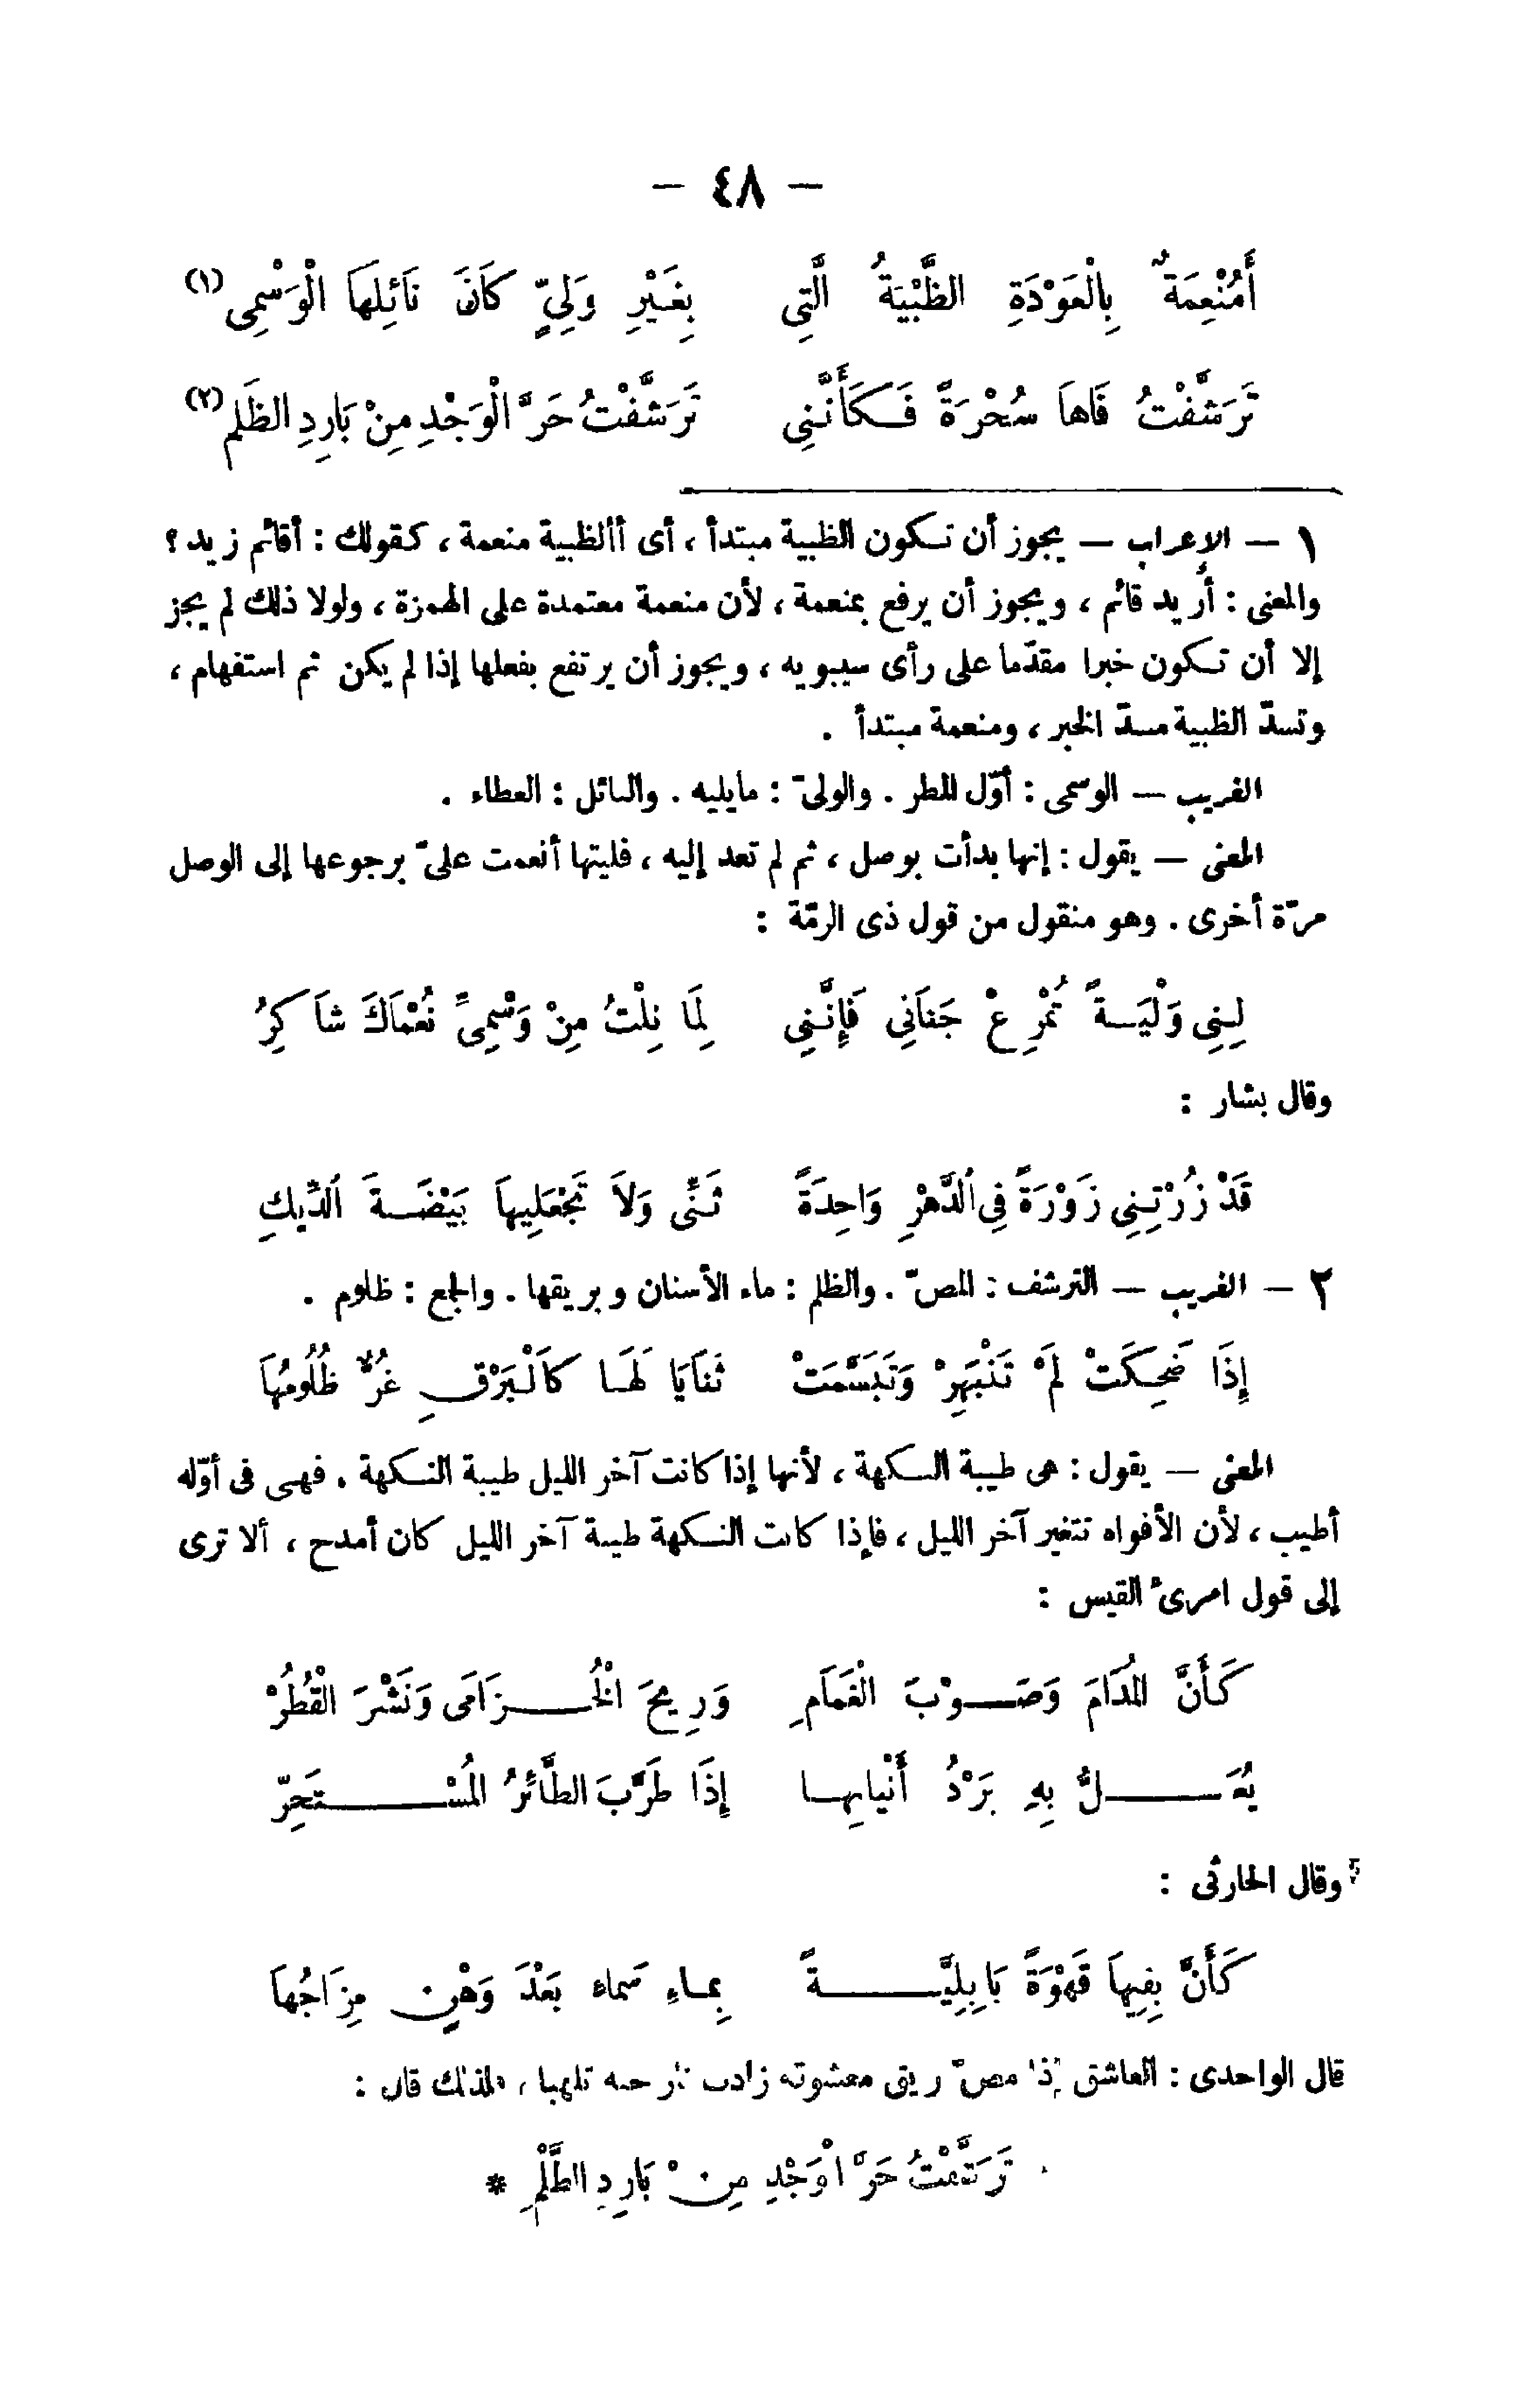 — ٤٨ —
أَمُنْعِمَةٌ بِالْعَوْدَةِ الظَّبْيَةُ الَّتِى بِغَيْرِ وَلِيٍّ كَانَ نَائِلَهَا الْوَسْمِى (١)
تَرَشَّفْتُ فَاهَا سُحْرَةً فَكَأَنَّنِى تَرَشَّفْتُ حَرَّ الْوَجْدِ مِنْ بَارِدِ الظَلْمِ (٢)
١ — الإعراب — يجوز أن تكون الظبية مبتدأ ، أى أالظبية منعمة ، كقولك : أقائم زيد ؟
والمعنى : أزيد قائم ، ويجوز أن يرفع بمنعمة ، لأن منعمة معتمدة على الهمزة ، ولولا ذلك لم يجز
إلا أن تكون خبرا مقدّما على رأى سيبويه ، ويجوز أن يرتفع بفعلها إذا لم يكن ثم استفهام ،
وتسدّ الظبية مسدّ الخبر ، ومنعمة مبتدأ .
الغريب — الوسمى : أوّل المطر . والولىّ : مايليه . والنائل : العطاء .
المعنى — يقول : إنها بدأت بوصل ، ثم لم تعد إليه ، فليتها أنعمت علىّ برجوعها إلى الوصل
مرّة أخرى . وهو منقول من قول ذى الرمّة :
لِنِى وَلْيَةً تُمْرِعْ جَنَابِى فَإِنَّنِى لِمَا نِلْتُ مِنْ وَسْمِىِّ نُعْمَاكَ شَاكِرُ
وقال بشار :
قَدْ زُرْتِنِى زَوْرَةً فِى الدَّهْرِ وَاحِدَةً ثَنِّى وَلَا تَجْعَلِيهَا بَيْضَةَ الدِّيكِ
٢ — الغريب — الترشف : المصّ . والظلم : ماء الأسنان وبريقها . والجمع : ظلوم .
إِذَا ضَحِكَتْ لَمْ تَنْبَهِرْ وَتَبَسَّمَتْ ثَنَايَا لَهَا كَالْبَرْقِ غُرٌّ ظُلُومُهَا
المعنى — يقول : هى طيبة النكهة ، لأنها إذا كانت آخر الليل طيبة النكهة . فهى فى أوّله
أطيب ، لأن الأفواه تتغير آخر الليل ، فإذا كانت النكهة طيبة آخر الليل كان أمدح ، ألا ترى
إلى قول امرئ القيس :
كَأَنَّ المُدَامَ وَصَوْبَ الْغَمَامِ وَرِيحَ الْخُزَامَى وَنَشْرَ الْقُطُرْ
يُعَلُّ بِهِ بَرْدُ أَنْيَابِهَا إِذَا طَرَّبَ الطَّائِرُ المُسْتَحِرّ
وقال الحارثى :
كَأَنَّ بِفِيهَا قَهْوَةً بَابِلِيَّةً بِمَاءِ سَمَاء بَعْدَ وَهْنٍ مِزَاجُهَا
قال الواحدى : العاشق إذا مصّ ريق معشوقه زادت نار حبه تلهبا ، فلذلك قال :
تَرَشَّفْتُ حَرَّ الْوَجْدِ مِنْ بَارِدِ الظَّلْمِ *